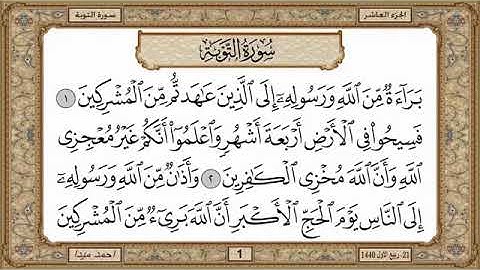 الجزء العاشر
سورة التوبة
سُورَةُ التَّوۡبَةِ
بَرَآءَةٌ مِّنَ ٱللَّهِ وَرَسُولِهِۦٓ إِلَى ٱلَّذِينَ عَٰهَدتُّم مِّنَ ٱلۡمُشۡرِكِينَ ١
فَسِيحُواْ فِي ٱلۡأَرۡضِ أَرۡبَعَةَ أَشۡهُرٖ وَٱعۡلَمُوٓاْ أَنَّكُمۡ غَيۡرُ مُعۡجِزِي
ٱللَّهِ وَأَنَّ ٱللَّهَ مُخۡزِي ٱلۡكَٰفِرِينَ ٢ وَأَذَٰنٞ مِّنَ ٱللَّهِ وَرَسُولِهِۦٓ
إِلَى ٱلنَّاسِ يَوۡمَ ٱلۡحَجِّ ٱلۡأَكۡبَرِ أَنَّ ٱللَّهَ بَرِيٓءٞ مِّنَ ٱلۡمُشۡرِكِينَ
23- ربيع الأول 1440
1
أحمد